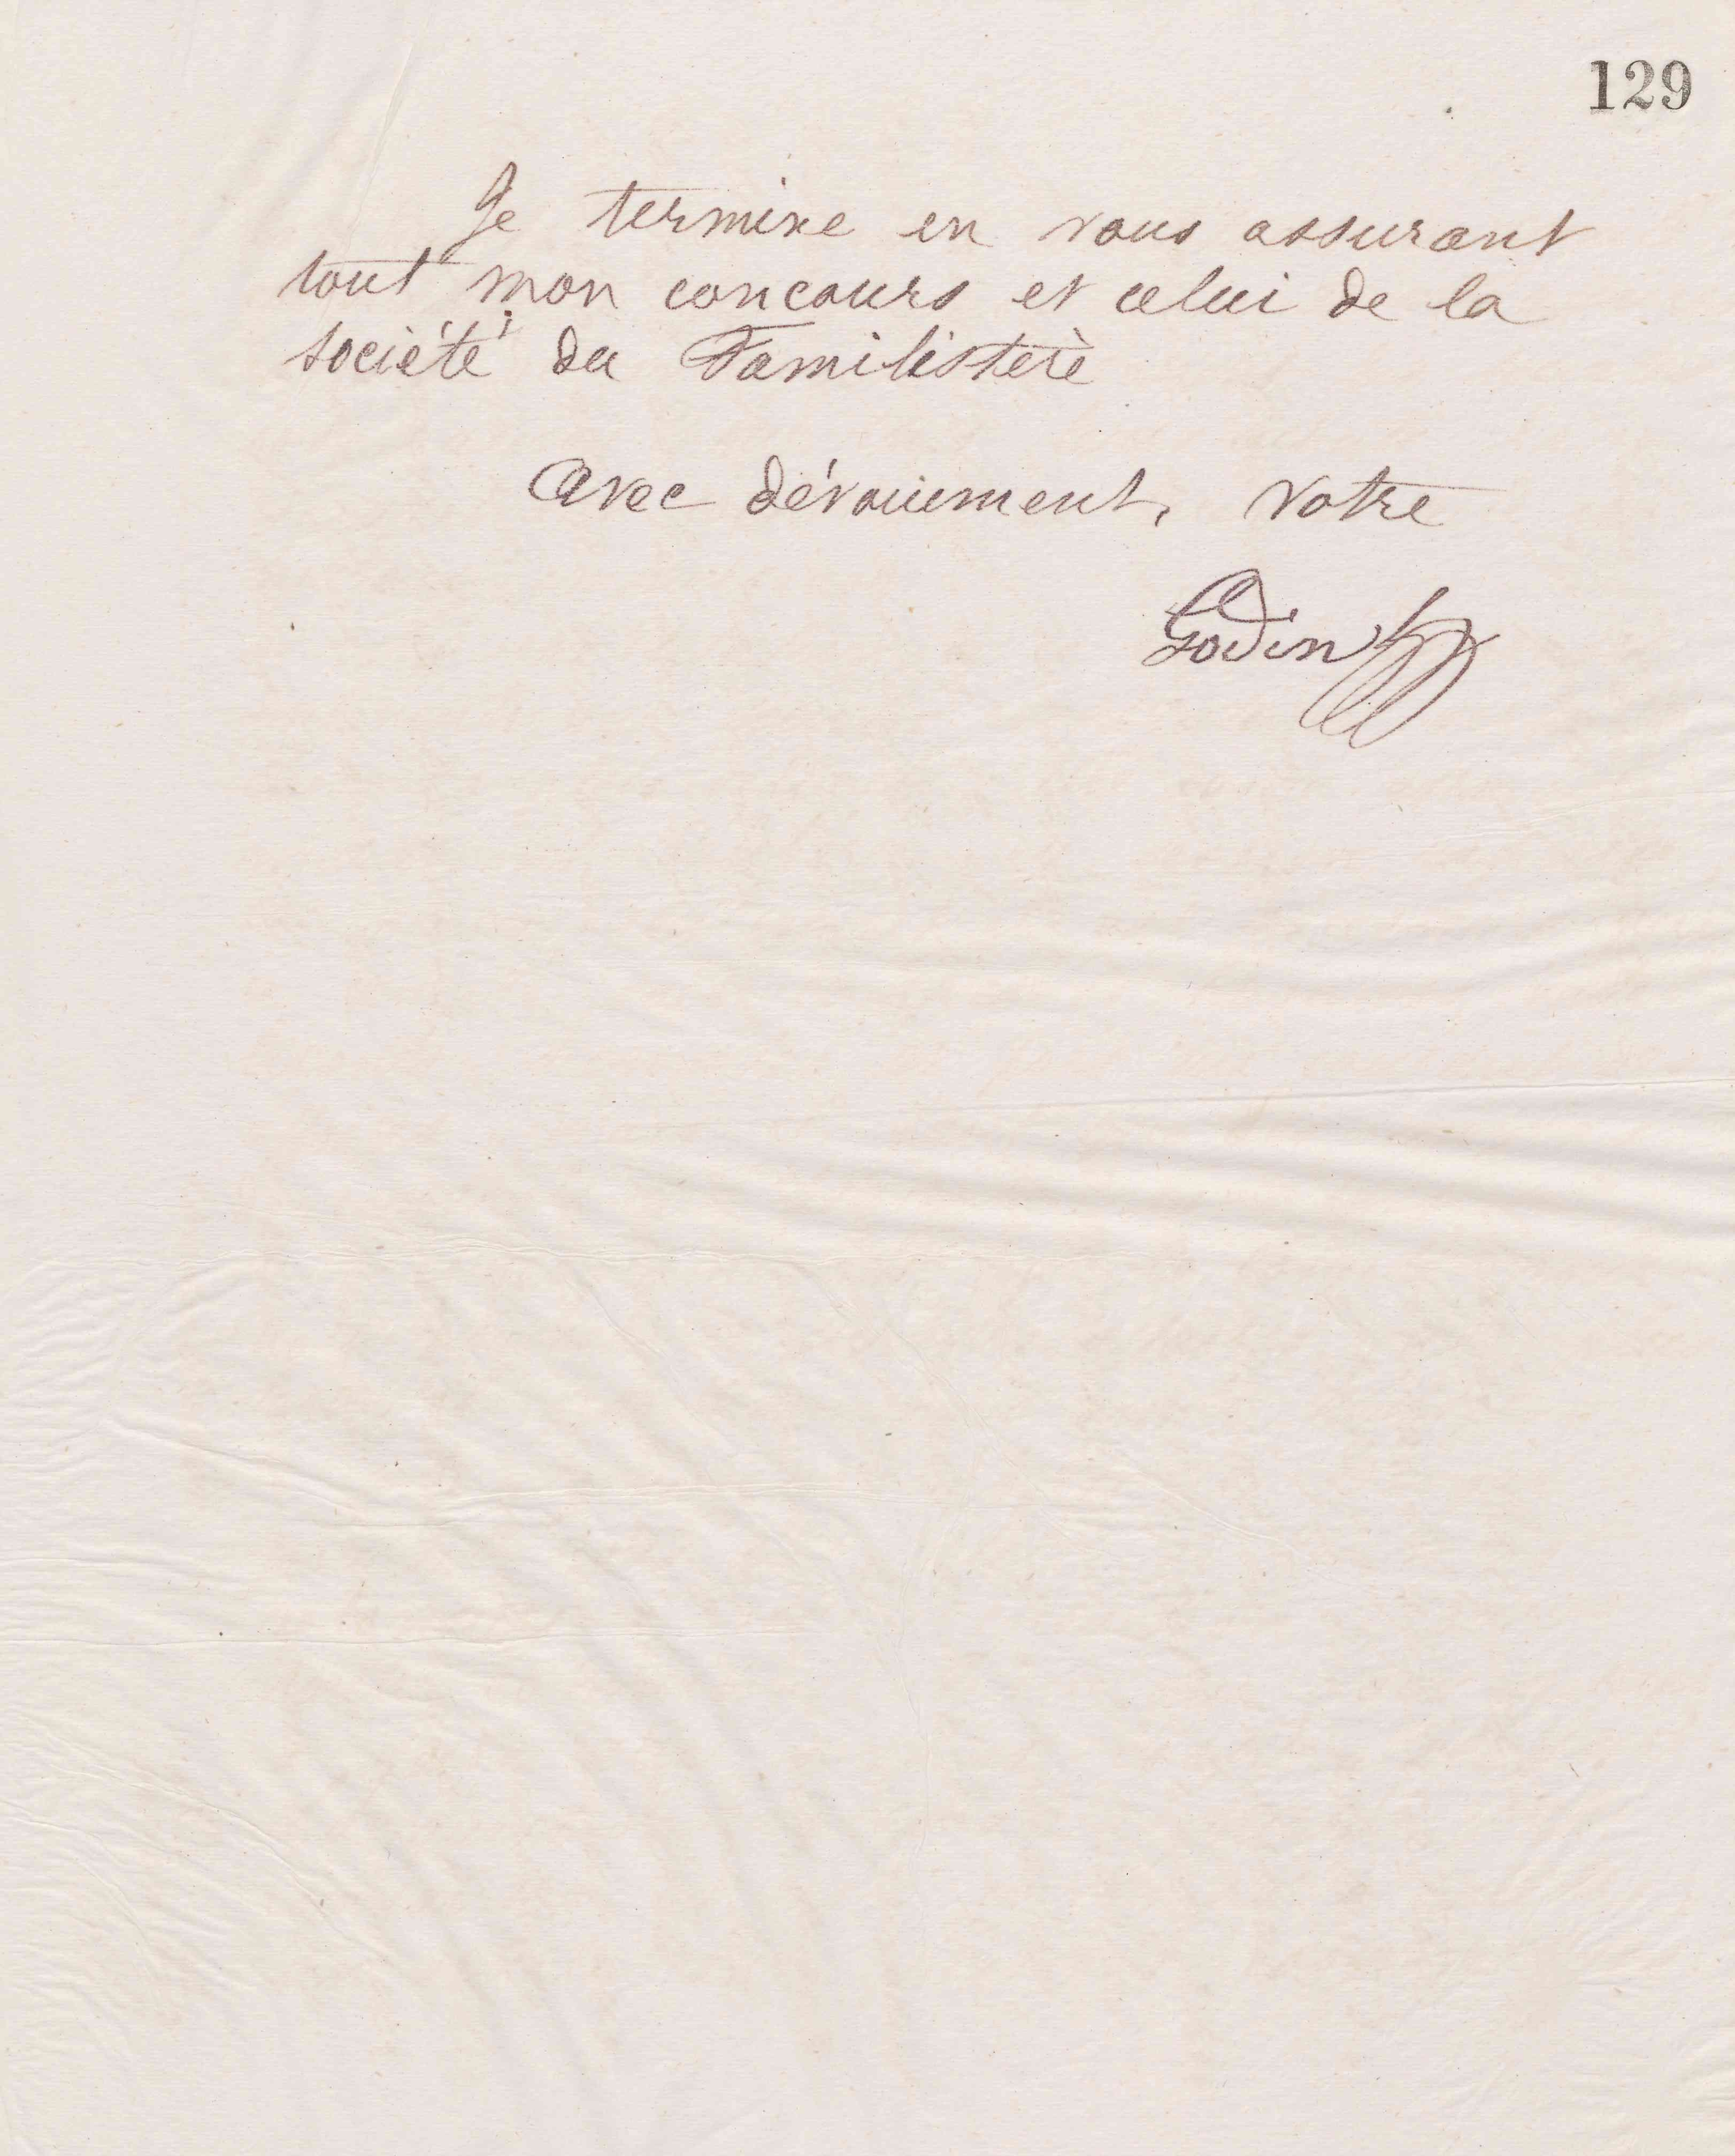 129
Je termine en vous assurant
tout mon concours et celui de la
société du Familistère
Avec dévouement, votre
Godin